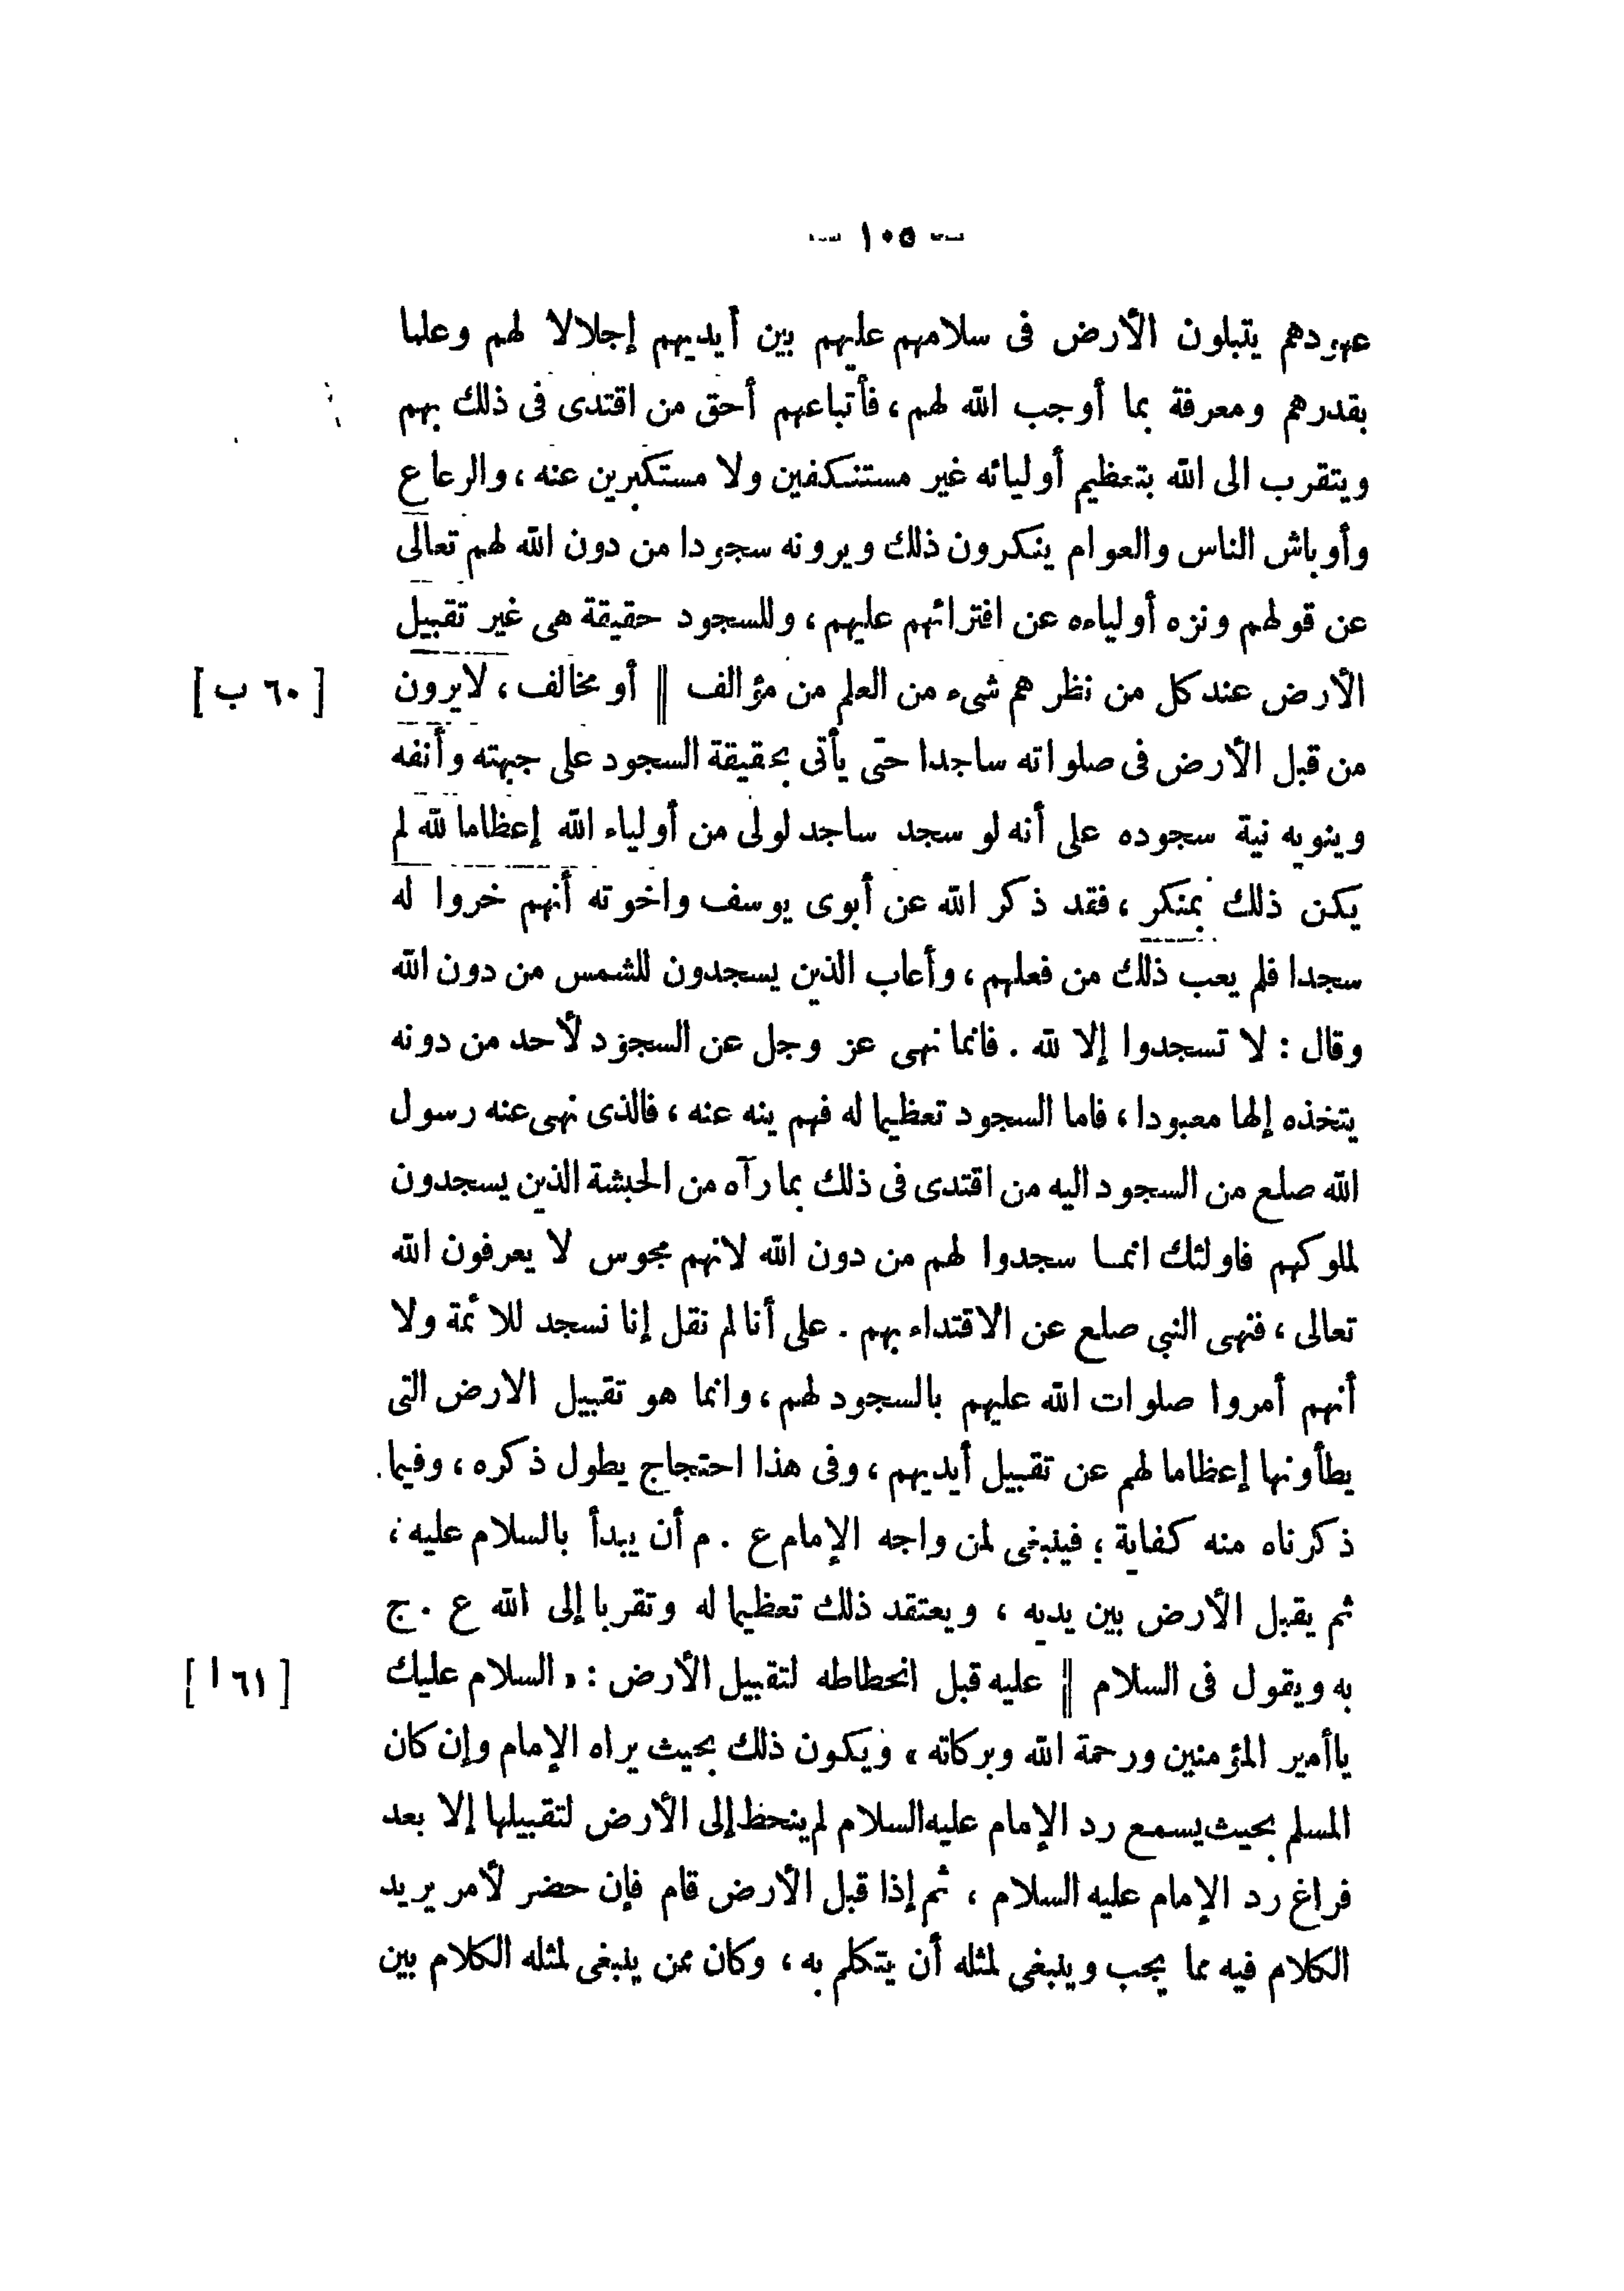 — ١٠٥ —
عهودهم يتبلون الأرض فى سلامهم عليهم بين أيديهم إجلالا لهم وعلما
بقدرهم ومعرفة بما أوجب الله لهم ، فأتباعهم أحق من اقتدى فى ذلك بهم
ويتقرب الى الله بتعظيم أوليائه غير مستنكفين ولا مستكبرين عنه ، والرعاع
وأوباش الناس والعوام ينكرون ذلك ويرونه سجودا من دون الله لهم تعالى
عن قولهم ونزه أولياءه عن افترائهم عليهم ، وللسجود حقيقة هى غير تقبيل
الأرض عند كل من نظر هم شىء من العلم من مؤالف || أو مخالف ، لايرون [ ٦٠ ب ]
من قبل الأرض فى صلواته ساجدا حتى يأتى بحقيقة السجود على جبهته وأنفه
وينويه نية سجوده على أنه لو سجد ساجد لولى من أولياء الله إعظاما لله لم
يكن ذلك بمنكر ، فقد ذكر الله عن أبوى يوسف واخوته أنهم خروا له
سجدا فلم يعب ذلك من فعلهم ، وأعاب الذين يسجدون للشمس من دون الله
وقال : لا تسجدوا إلا لله . فانما نهى عز وجل عن السجود لأحد من دونه
يتخذه إلها معبودا ، فاما السجود تعظيما له فهم ينه عنه ، فالذى نهى عنه رسول
الله صلع من السجود اليه من اقتدى فى ذلك بما رآه من الحبشة الذين يسجدون
لملوكهم فاولئك انمـا سجدوا لهم من دون الله لانهم مجوس لا يعرفون الله
تعالى ، فنهى النبي صلع عن الاقتداء بهم . على أنا لم نقل إنا نسجد للائمة ولا
أنهم أمروا صلوات الله عليهم بالسجود لهم ، وانما هو تقبيل الارض التى
يطأونها إعظاما لهم عن تقبيل أيديهم ، وفى هذا احتجاج يطول ذكره ، وفيما
ذكرناه منه كفاية ؛ فينبغى لمن واجه الإمام ع . م أن يبدأ بالسلام عليه ،
ثم يقبل الأرض بين يديه ، ويعتقد ذلك تعظيما له وتقربا إلى الله ع . ج
به ويقول فى السلام || عليه قبل انحطاطه لتقبيل الأرض : « السلام عليك [ ٦١ ا ]
ياأمير المؤمنين ورحمة الله وبركاته » ويكون ذلك بحيث يراه الإمام وإن كان
المسلم بحيث يسمع رد الإمام عليه السلام لم ينحظ إلى الأرض لتقبيلها إلا بعد
فراغ رد الإمام عليه السلام ، ثم إذا قبل الأرض قام فإن حضر لأمر يريد
الكلام فيه مما يجب وينبغى لمثله أن يتكلم به ، وكان ممن ينبغى لمثله الكلام بين